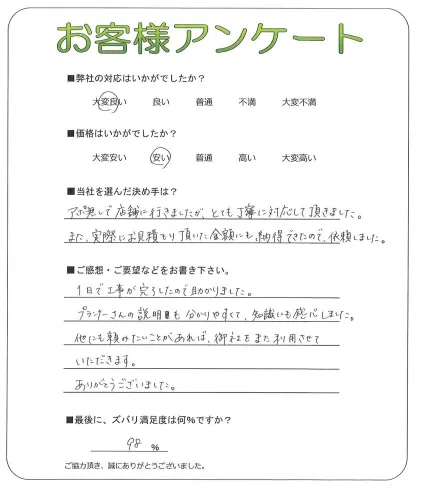 お客様アンケート
■弊社の対応はいかがでしたか？
大変良い 良い 普通 不満 大変不満
■価格はいかがでしたか？
大変安い 安い 普通 高い 大変高い
■当社を選んだ決め手は？
アポ無しで店舗に行きましたが、とても丁寧に対応して頂きました。
また、実際にお見積もり頂いた金額にも、納得できたので、依頼しました。
■ご感想・ご要望などをお書き下さい。
1日で工事が完了したので助かりました。
プランナーさんの説明も分かりやすくて、知識も感じました。
他にも頼みたいことがあれば、御社をまた利用させて
いただきます。
ありがとうございました。
■最後に、ズバリ満足度は何%ですか？
98 %
ご協力頂き、誠にありがとうございました。